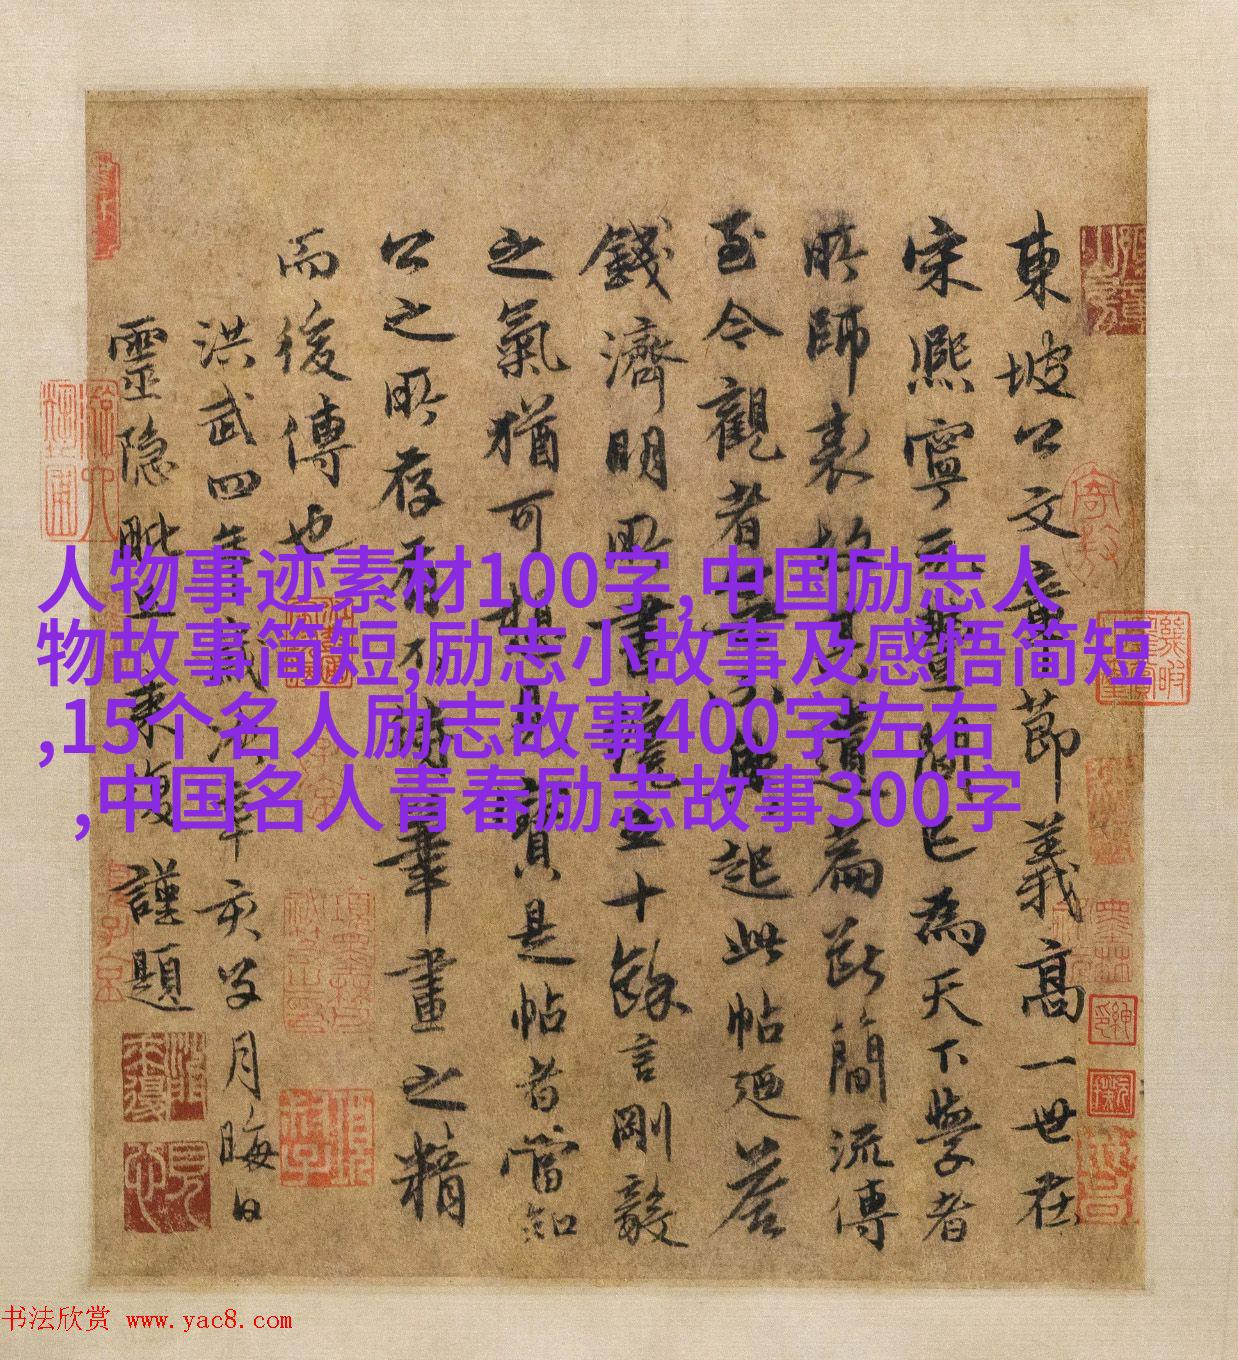 東坡公文章節義高一世在
宋熙寧元豐間已為天下學者
所師表故其遺篇斷簡流傳
至今觀者莫不興起此帖迺荅
錢濟明所書雖五十餘言剛毅
之氣猶可想見寶是帖者當知
公之所存有不筆畫之精
而後傳也
洪武四年歲次辛亥月晦日
靈隱毗丘來復謹題
人物事迹素材100字,中国励志人
物故事简短,励志小故事及感悟简短
,15个名人励志故事400字左右
,中国名人青春励志故事300字
书法欣赏 www.yac8.com